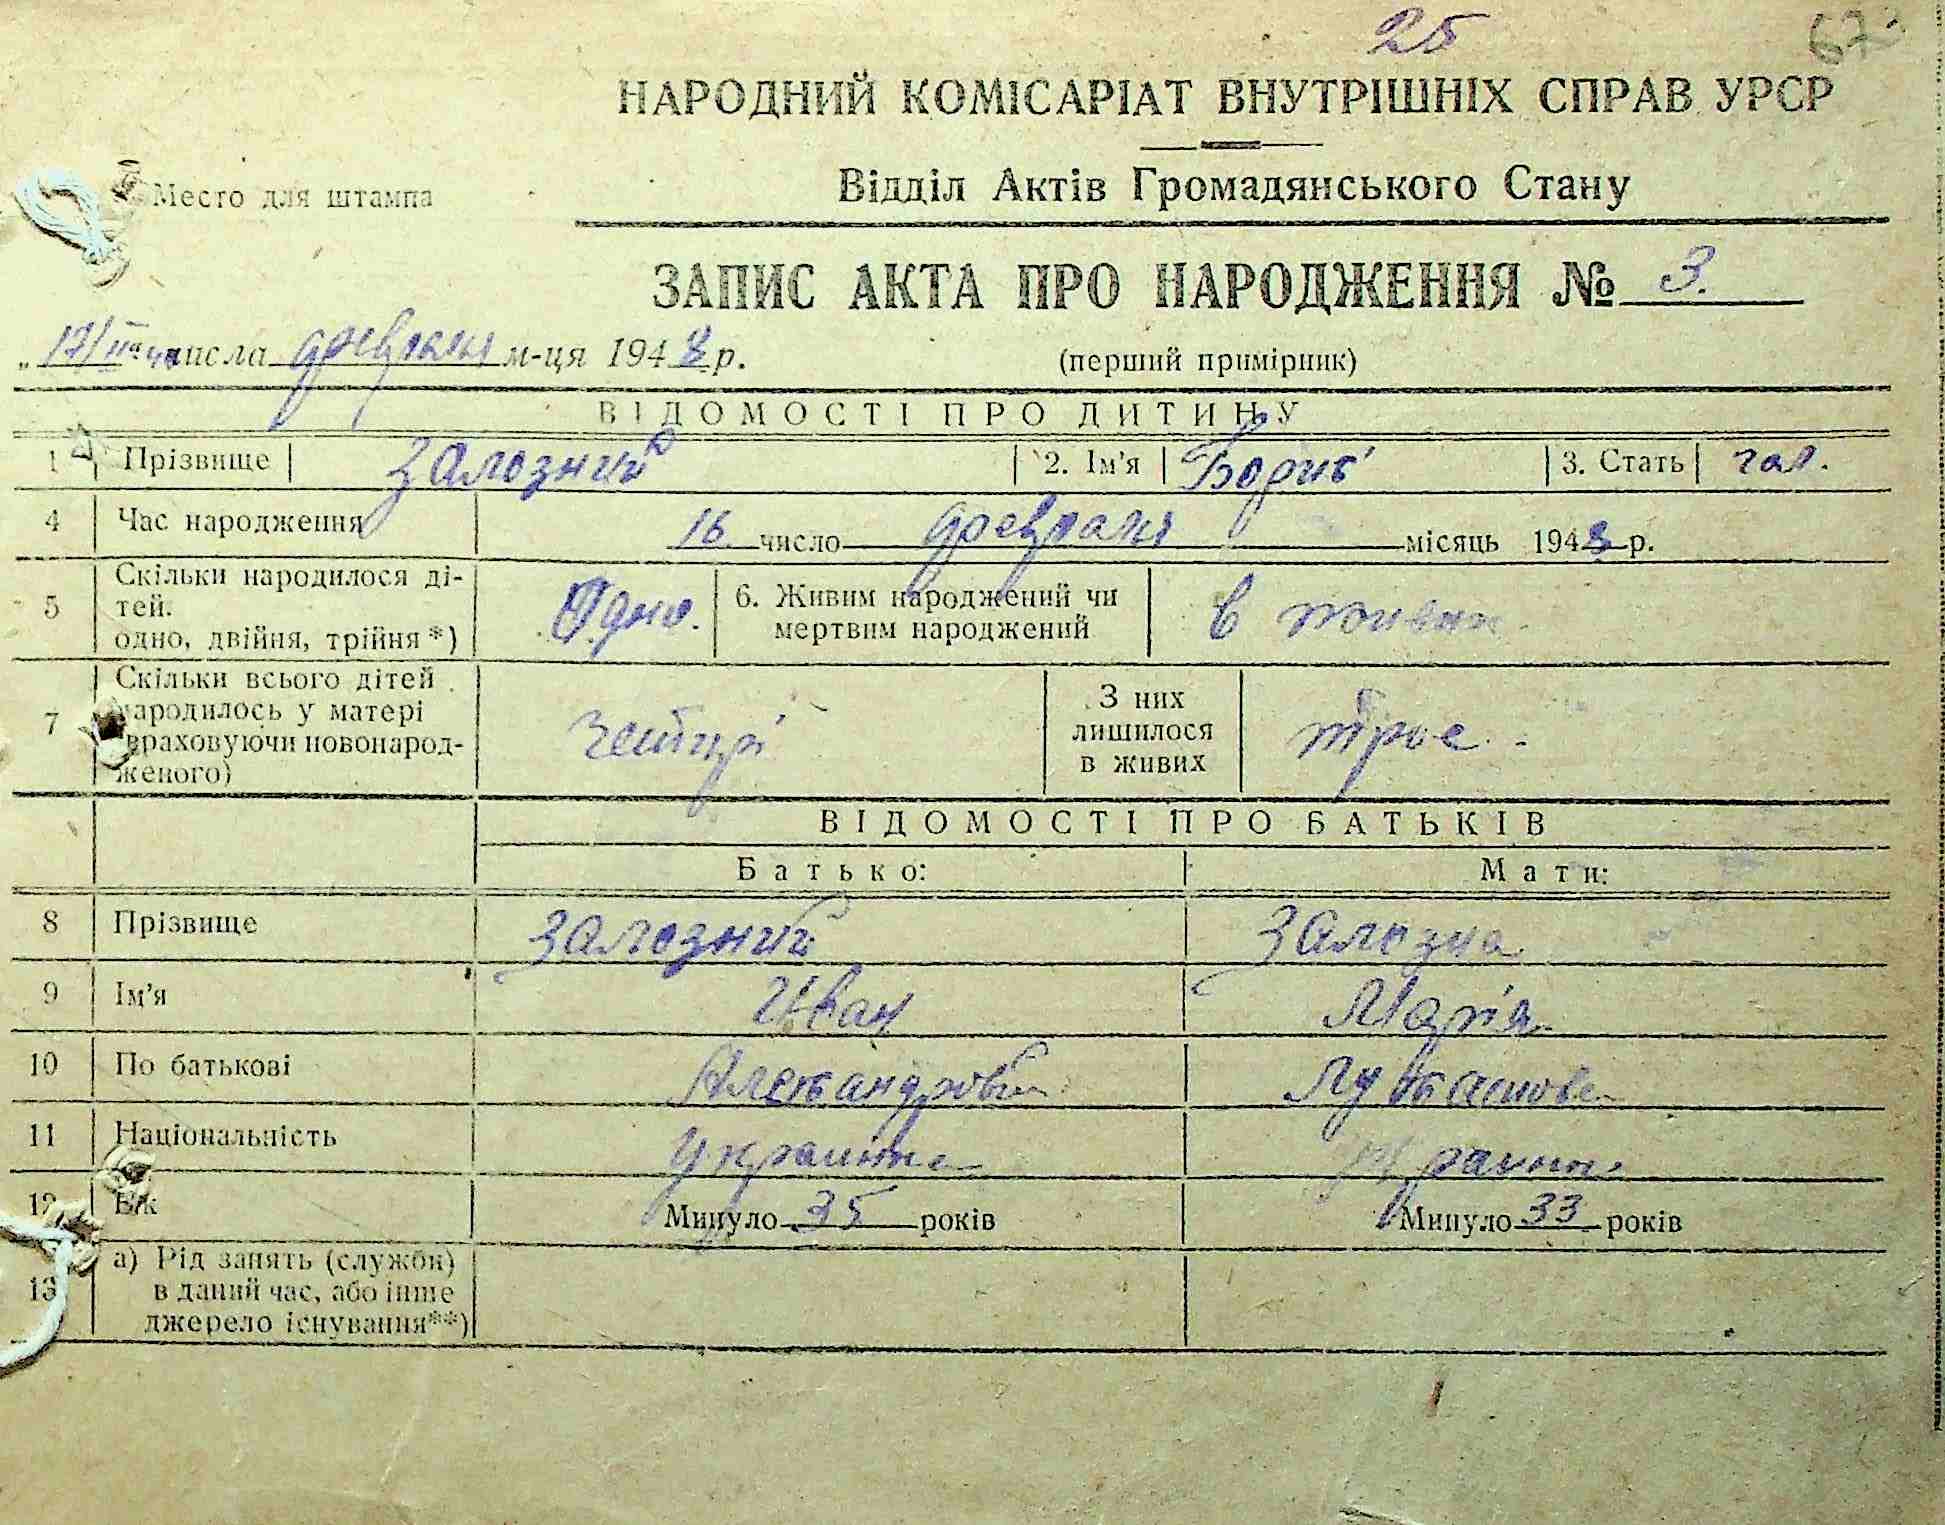 25
НАРОДНИЙ КОМІСАРІАТ ВНУТРІШНІХ СПРАВ УРСР
Место для штампа
Відділ Актів Громадянського Стану
ЗАПИС АКТА ПРО НАРОДЖЕННЯ № 3.
„17/II" числа февраля м-ця 1948 р.
(перший примірник)
ВІДОМОСТІ ПРО ДИТИНУ
1 Прізвище Залозний 2. Ім'я Борис 3. Стать чол.
4 Час народження 16 число февраля місяць 1948 р.
5 Скільки народилося дітей. одно, двійня, трійня *) Одно. 6. Живим народжений чи мертвим народжений в живих
7 Скільки всього дітей народилось у матері (враховуючи новонародженого) З них лишилося в живих трое.
ВІДОМОСТІ ПРО БАТЬКІВ
Батько: Мати:
8 Прізвище Залозний Залозна
9 Ім'я Иван Марія
10 По батькові Александрович Лукашовна
11 Національність
12 Вік Минуло 35 років Минуло 33 років
13 а) Рід занять (служби) в даний час, або інше джерело існування**)